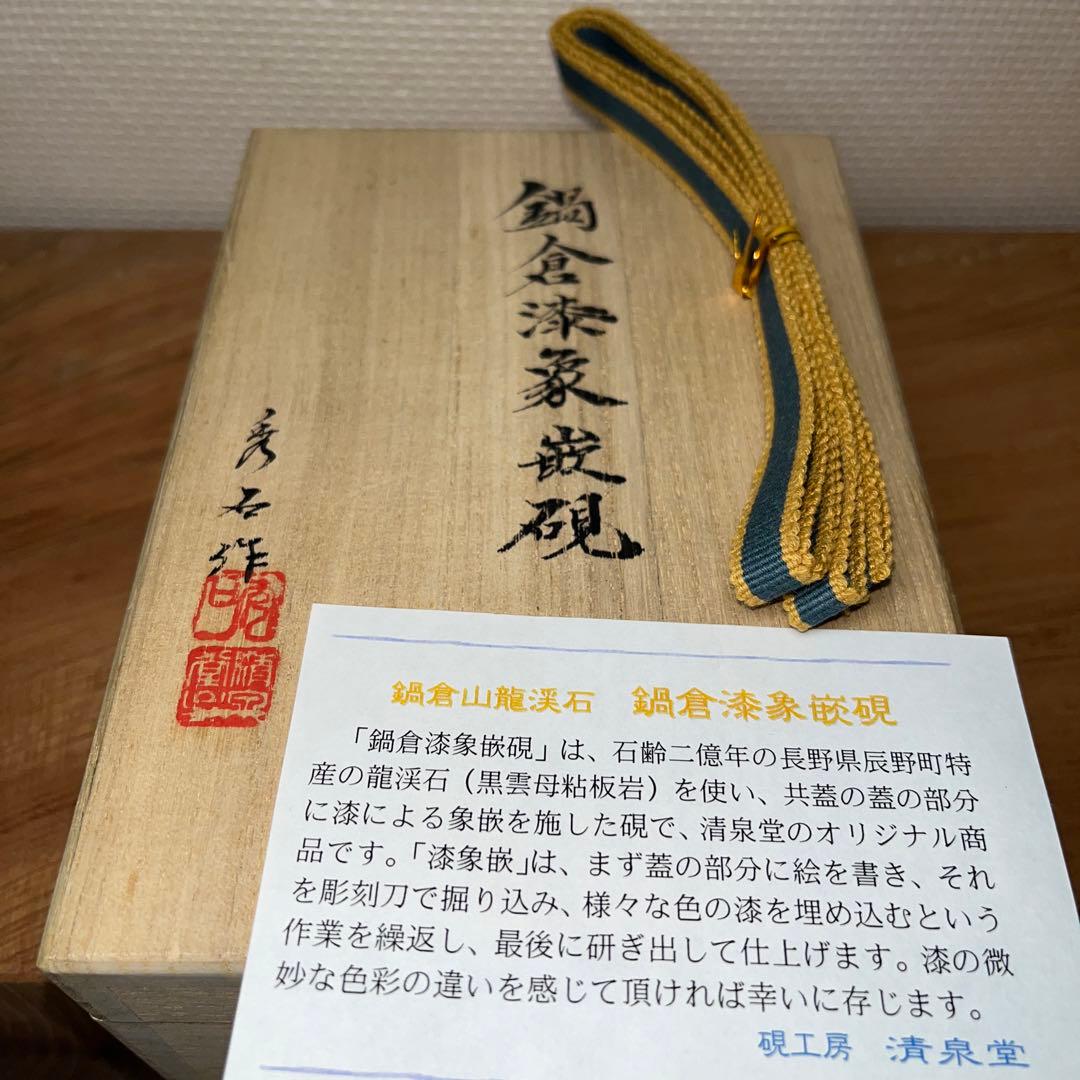 鍋倉漆象嵌硯
秀石作
鍋倉山龍渓石　鍋倉漆象嵌硯
「鍋倉漆象嵌硯」は、石齢二億年の長野県辰野町特
産の龍渓石（黒雲母粘板岩）を使い、共蓋の蓋の部分
に漆による象嵌を施した硯で、清泉堂のオリジナル商
品です。「漆象嵌」は、まず蓋の部分に絵を書き、それ
を彫刻刀で掘り込み、様々な色の漆を埋め込むという
作業を繰返し、最後に研ぎ出して仕上げます。漆の微
妙な色彩の違いを感じて頂ければ幸いに存じます。
硯工房　清泉堂